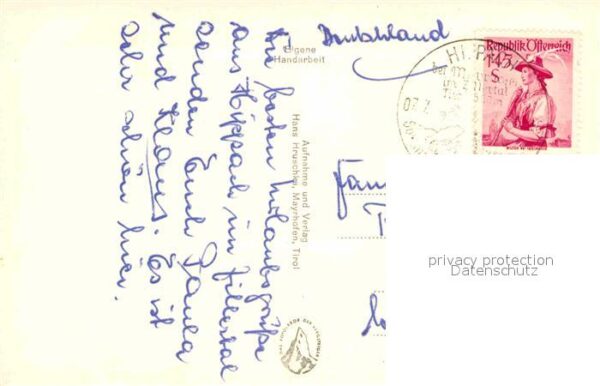 Die besten Urlaubsgrüße
aus Hippach im Zillertal
senden Euch
und Klaus. Es ist
sehr schön hier.
Eigene
Handarbeit
Aufnahme und Verlag
Hans Hruschka, Mayrhofen, Tirol
Deutschland
HIPP
Republik Österreich
1.45
S
Fam
privacy protection
Datenschutz